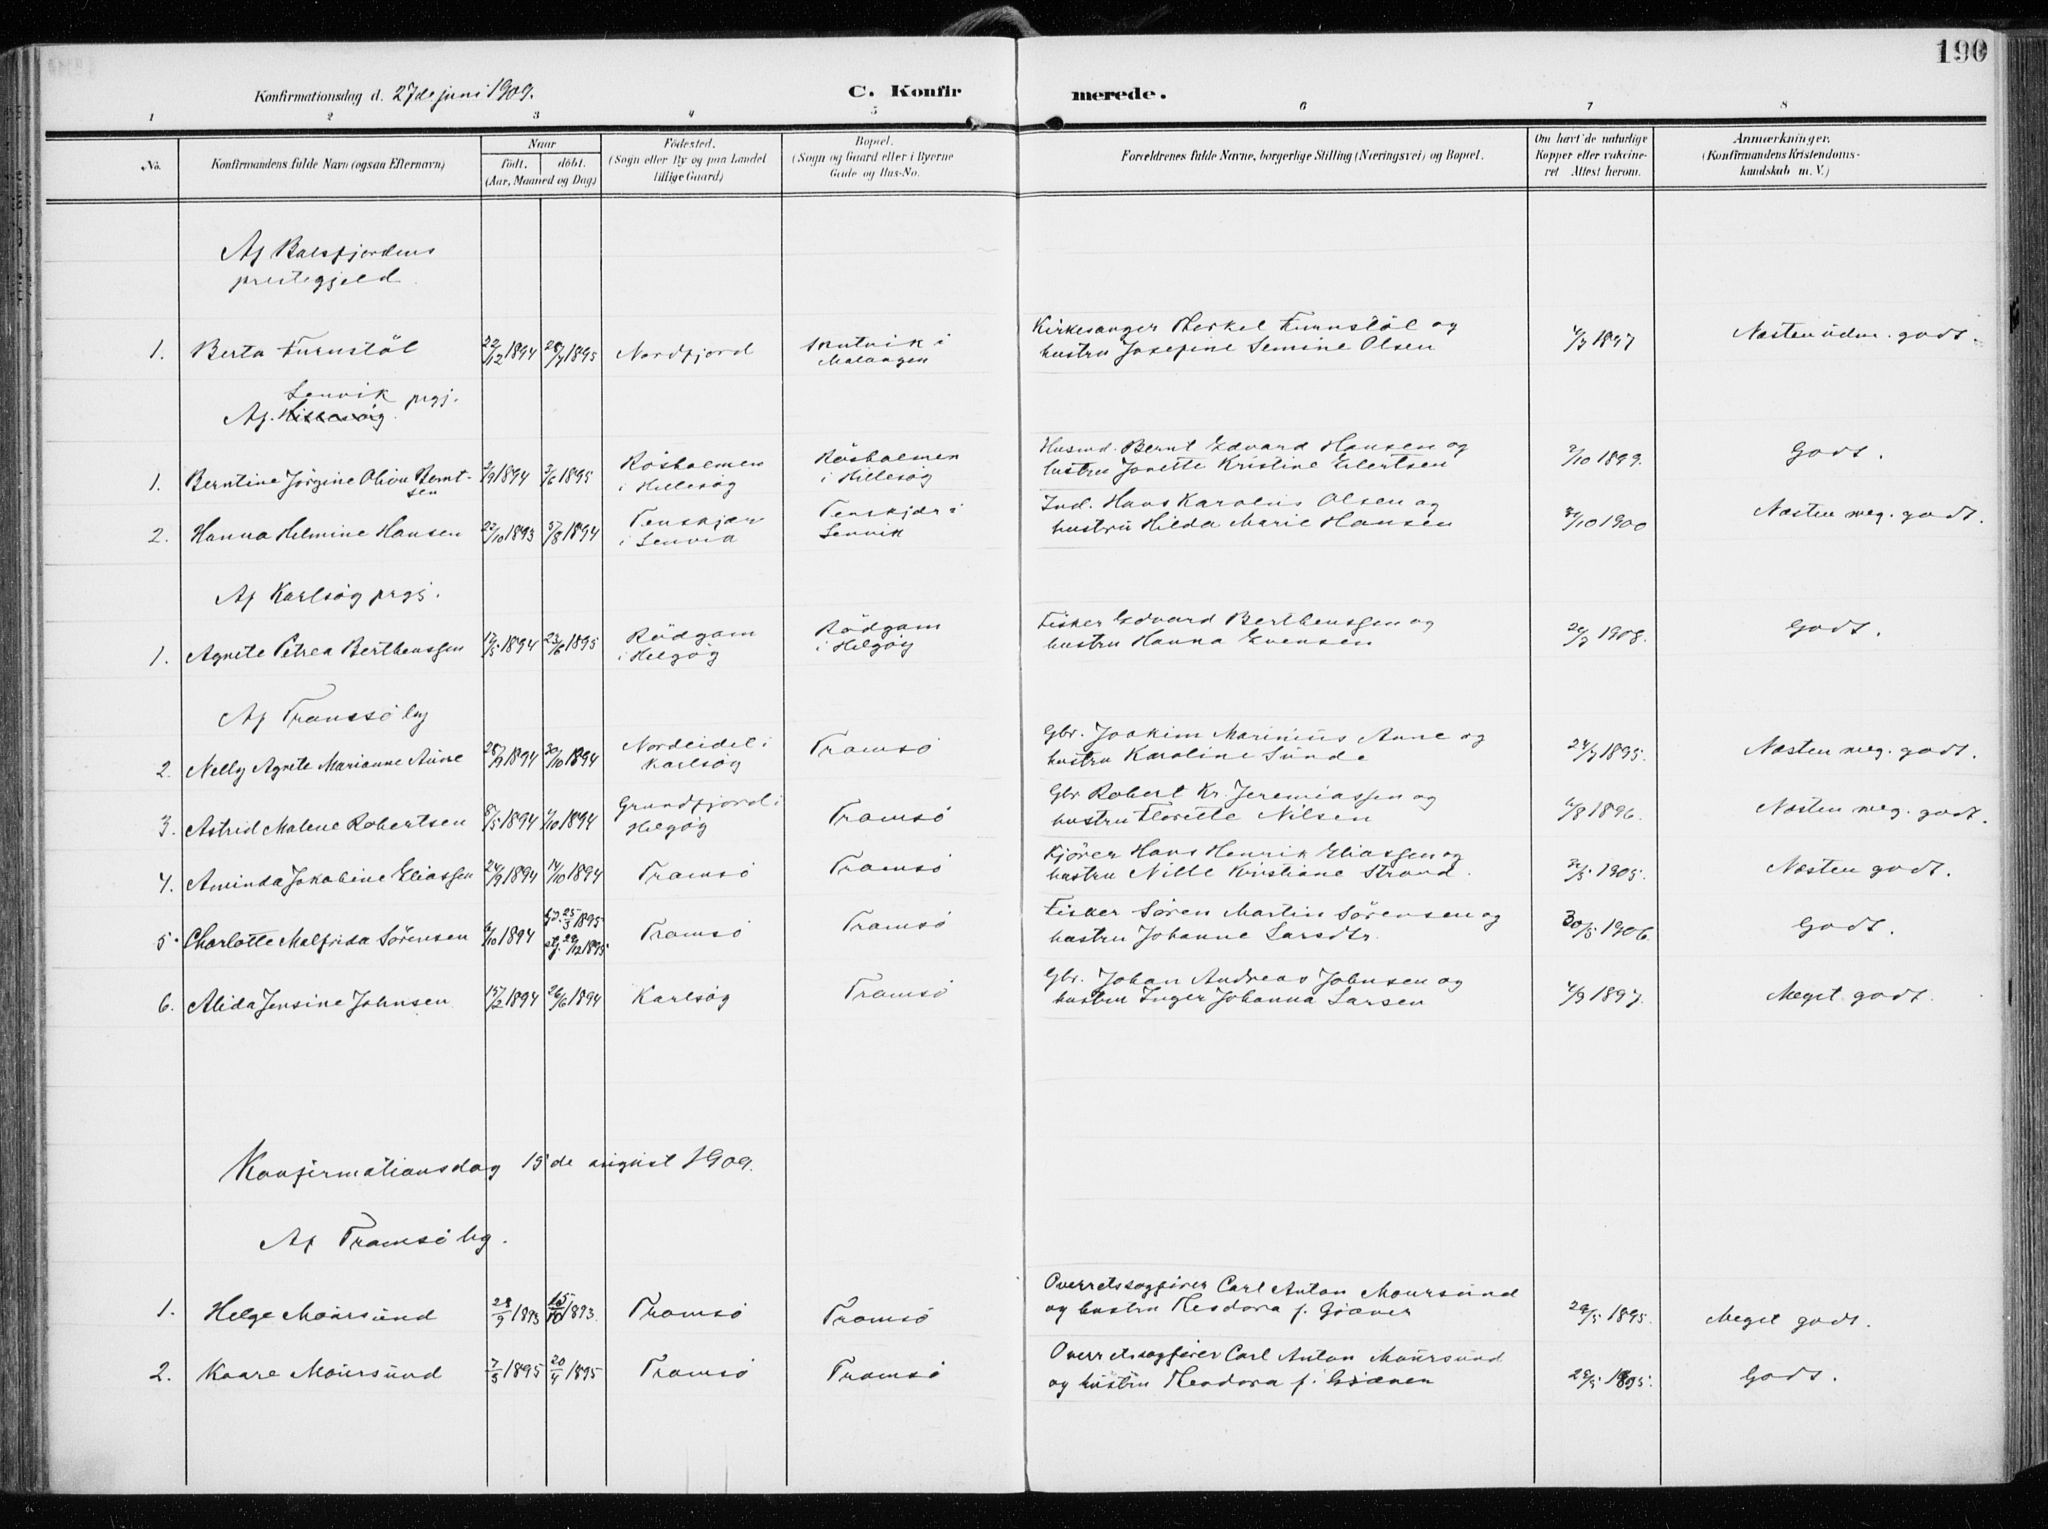 190
Konfirmationsdag d. 27de juni 1909.
C. Konfir merede.
1 2 3 4 5 6 7 8
No.
Konfirmandens fulde Navn (ogsaa Efternavn)
Naar
født. døbt.
(Aar, Maaned og Dag)
Fødested.
(Sogn eller By og paa Landet
tillige Gaard)
Bopæl.
(Sogn og Gaard eller i Byerne
Gade og Hus-No.
Forældrenes fulde Navne, borgerlige Stilling (Næringsvei) og Bopæl.
Om havt de naturlige
Kopper eller vakcine-
ret Attest herom.
Anmærkninger.
(Konfirmandens Kristendoms-
kundskab m. V.)
Af Balsfjordens
prestegjeld.
1. Berta Furnstöl 22/12 1894 28/7 1895 Nordfjord
i
Malangen
Kirkesanger Furnstöl og
hustru Josefine Semine Olsen
1897
Næsten udm. godt.
Senvik prgj.
Af Hillesög
1. Berntine Jörgine Oliva Bernt-
sen
1894 1895
Rösholmen
i Hillesög
Rösholmen
i Hillesög
Husmd. Bernt Edvard Hansen og
hustru Janette Kristine Eilertsen
1899.
Godt.
2. Hanna Helmine Hansen 22/10 1893 1894
Tenskjær
i
Tenskjær i
Senvik
Ind. Hans Karolius Olsen og
hustru Hilda Marie Hansen
1900
Næsten meg. godt.
Af Karlsög prgj.
1. Agnete Petrea Bertheussen 17/5 1894 23/6 1895
Rödgam
i Helgöy
Rödgam
i Helgöy
Fisker Edvard Bertheussen og
hustru Hanna Evensen
1908.
Godt.
Af Tromsö by
2. Nelly Agnete Marianne Aune 1894 30/10 1894
Nordeidet i
Karlsög
Tromsö
Gbr. Joakim Marinius Aune og
hustru Karoline Sunde
1895.
Næsten meg. godt.
3. Astrid Malene Robertsen 8/5 1894 1894
Grundfjord i
Helgög
Tromsö
Gbr. Robert Kr. Jeremiassen og
hustru Florette Nilsen
1896.
Næsten meg. godt.
4. Aminda Jakobine Eliassen 24/9 1894 14/10 1894 Tromsö Tromsö
Kjører Hans Henrik Eliassen og
hustru Nille Kristiane Strand.
1905.
Næsten godt.
5. Charlotte Malfrida Sørensen 6/10 1894
25/3 1895
1895
Tromsö Tromsö
Fisker Søren Martin Sørensen og
hustru Johanne Larsdtr.
30/5 1906.
Godt.
6. Alida Jensine Johnsen 15/2 1894 26/6 1894 Karlsög Tromsö
Gbr. Johan Andreas Johnsen og
hustru Inger Johanna Larsen
1897.
Meget godt.
Konfirmationsdag 15de august 1909.
Af Tromsö by.
1. Helge Moursund 28/9 1893 15/10 1893. Tromsö Tromsö
Overretssagfører Carl Anton Moursund
og hustru Theodora f. Giæver
29/5 1895.
Meget godt.
2. Kaare Moursund 7/3 1895 20/4 1895 Tromsö Tromsö
Overretssagfører Carl Anton Moursund
og hustru Theodora f. Giæver
29/5 1895.
Godt.